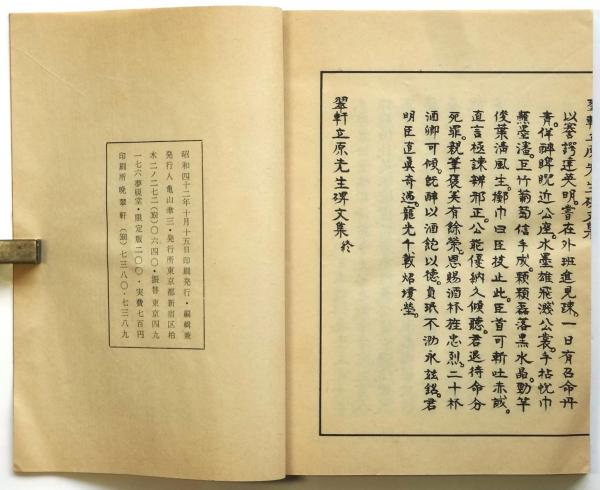 翠軒立原先生碑文集
以謇諤達英明。嘗在外班進見疎。一日有召命丹
青。佯醉睥睨近公座。水墨雄飛濺公裳。手拈忱巾
蘸墨瀋。巨竹葡萄信手成。顆顆磊落黒水晶。勁竿
俊葉淸風生。擲巾曰臣技止此。臣首可斬吐赤誠。
直言極諫辨邪正。公能優納久傾聽。君退待命分
死罪。親筆褒美有餘榮。恩賜酒杯旌忠烈。二十杯
酒卿可傾。既醉以酒飽以德。貞珉不泐永玆銘。君
明臣直眞奇遇。寵光千載焰墳塋。
翠軒立原先生碑文集 終
昭和四十二年十月十五日印刷発行・編輯兼
発行人 亀山聿三・発行所東京都新宿区柏
木二ノ二七二(369)〇六四〇・振替東京四九
一七六夢硯堂・限定版二〇〇・実費七百円
印刷所晩翠軒 七三八〇・七三八九